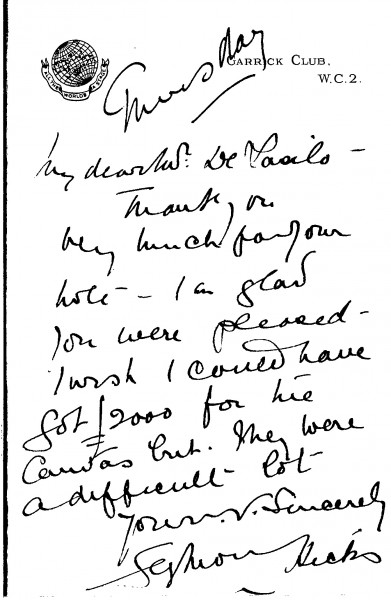 ALL THE WORLD'S A STAGE
GARRICK CLUB,
W.C.2.
Thursday
My dear Mr. De Laszlo –
Thank you
very much for your
note – I am glad
you were pleased –
I wish I could have
got £2000 for the
Canvas but. They were
a difficult lot
Yours. V. Sincerely
Seymour Hicks